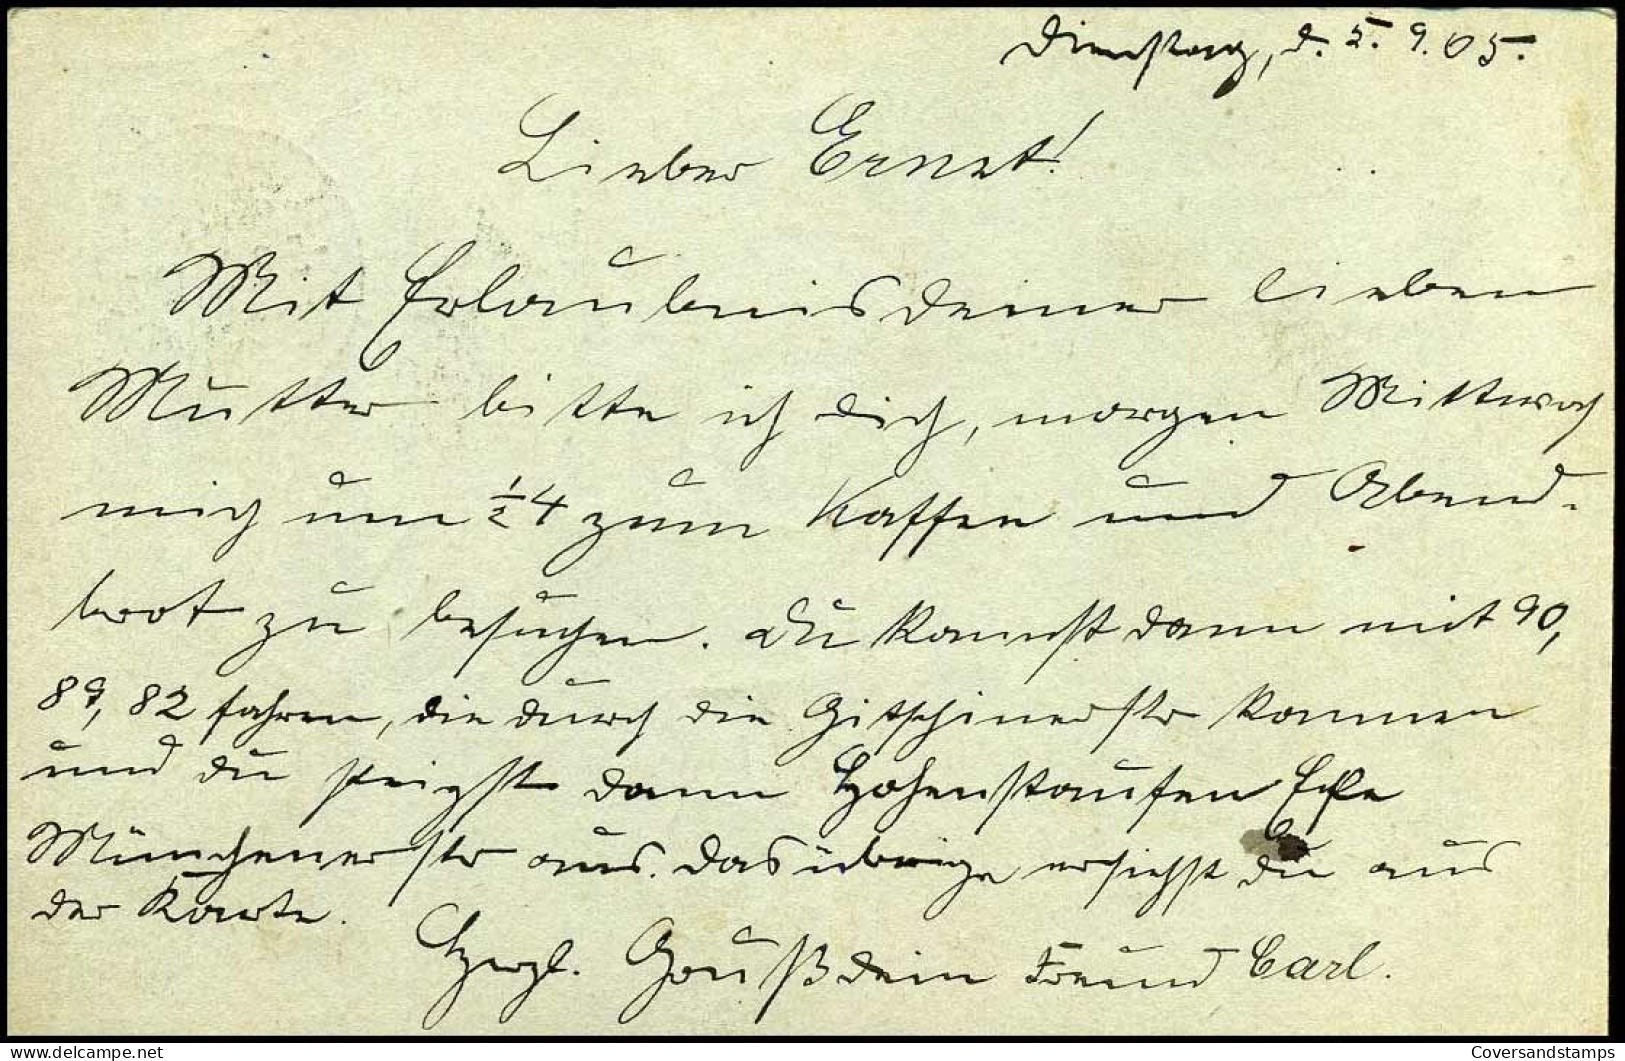 Dienstag, d. 5. 9. 05.
Lieber Ernst!
Mit Erlaubnis deiner lieben
Mutter bitte ich dich, morgen Mittwoch
mich um ½4 zum Kaffee und Abend-
brot zu besuchen. Du kannst dann mit 90,
89, 82 fahren, die durch die Gitschinerstr kommen
und du steigst dann Hohenstaufen Ecke
Münchenerstr aus. das übrige ersiehst du aus
der Karte.
Herzl. Gruß dein Freund Carl.
Coversandstamps